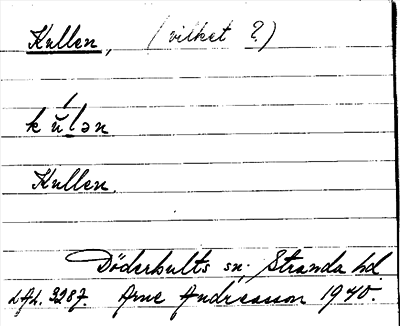 Kullen, (vilket ?)
kŭ́lən
Kullen.
Döderhults sn; Stranda hd.
LfL. 3287. Arne Andreasson 1940.